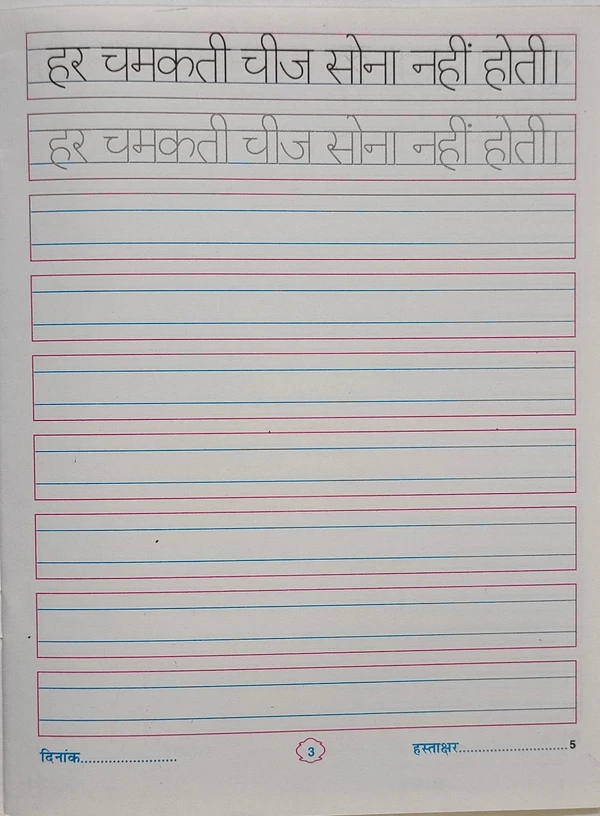 हर चमकती चीज सोना नहीं होती।
हर चमकती चीज सोना नहीं होती।
दिनांक........................ 3 हस्ताक्षर........................... 5